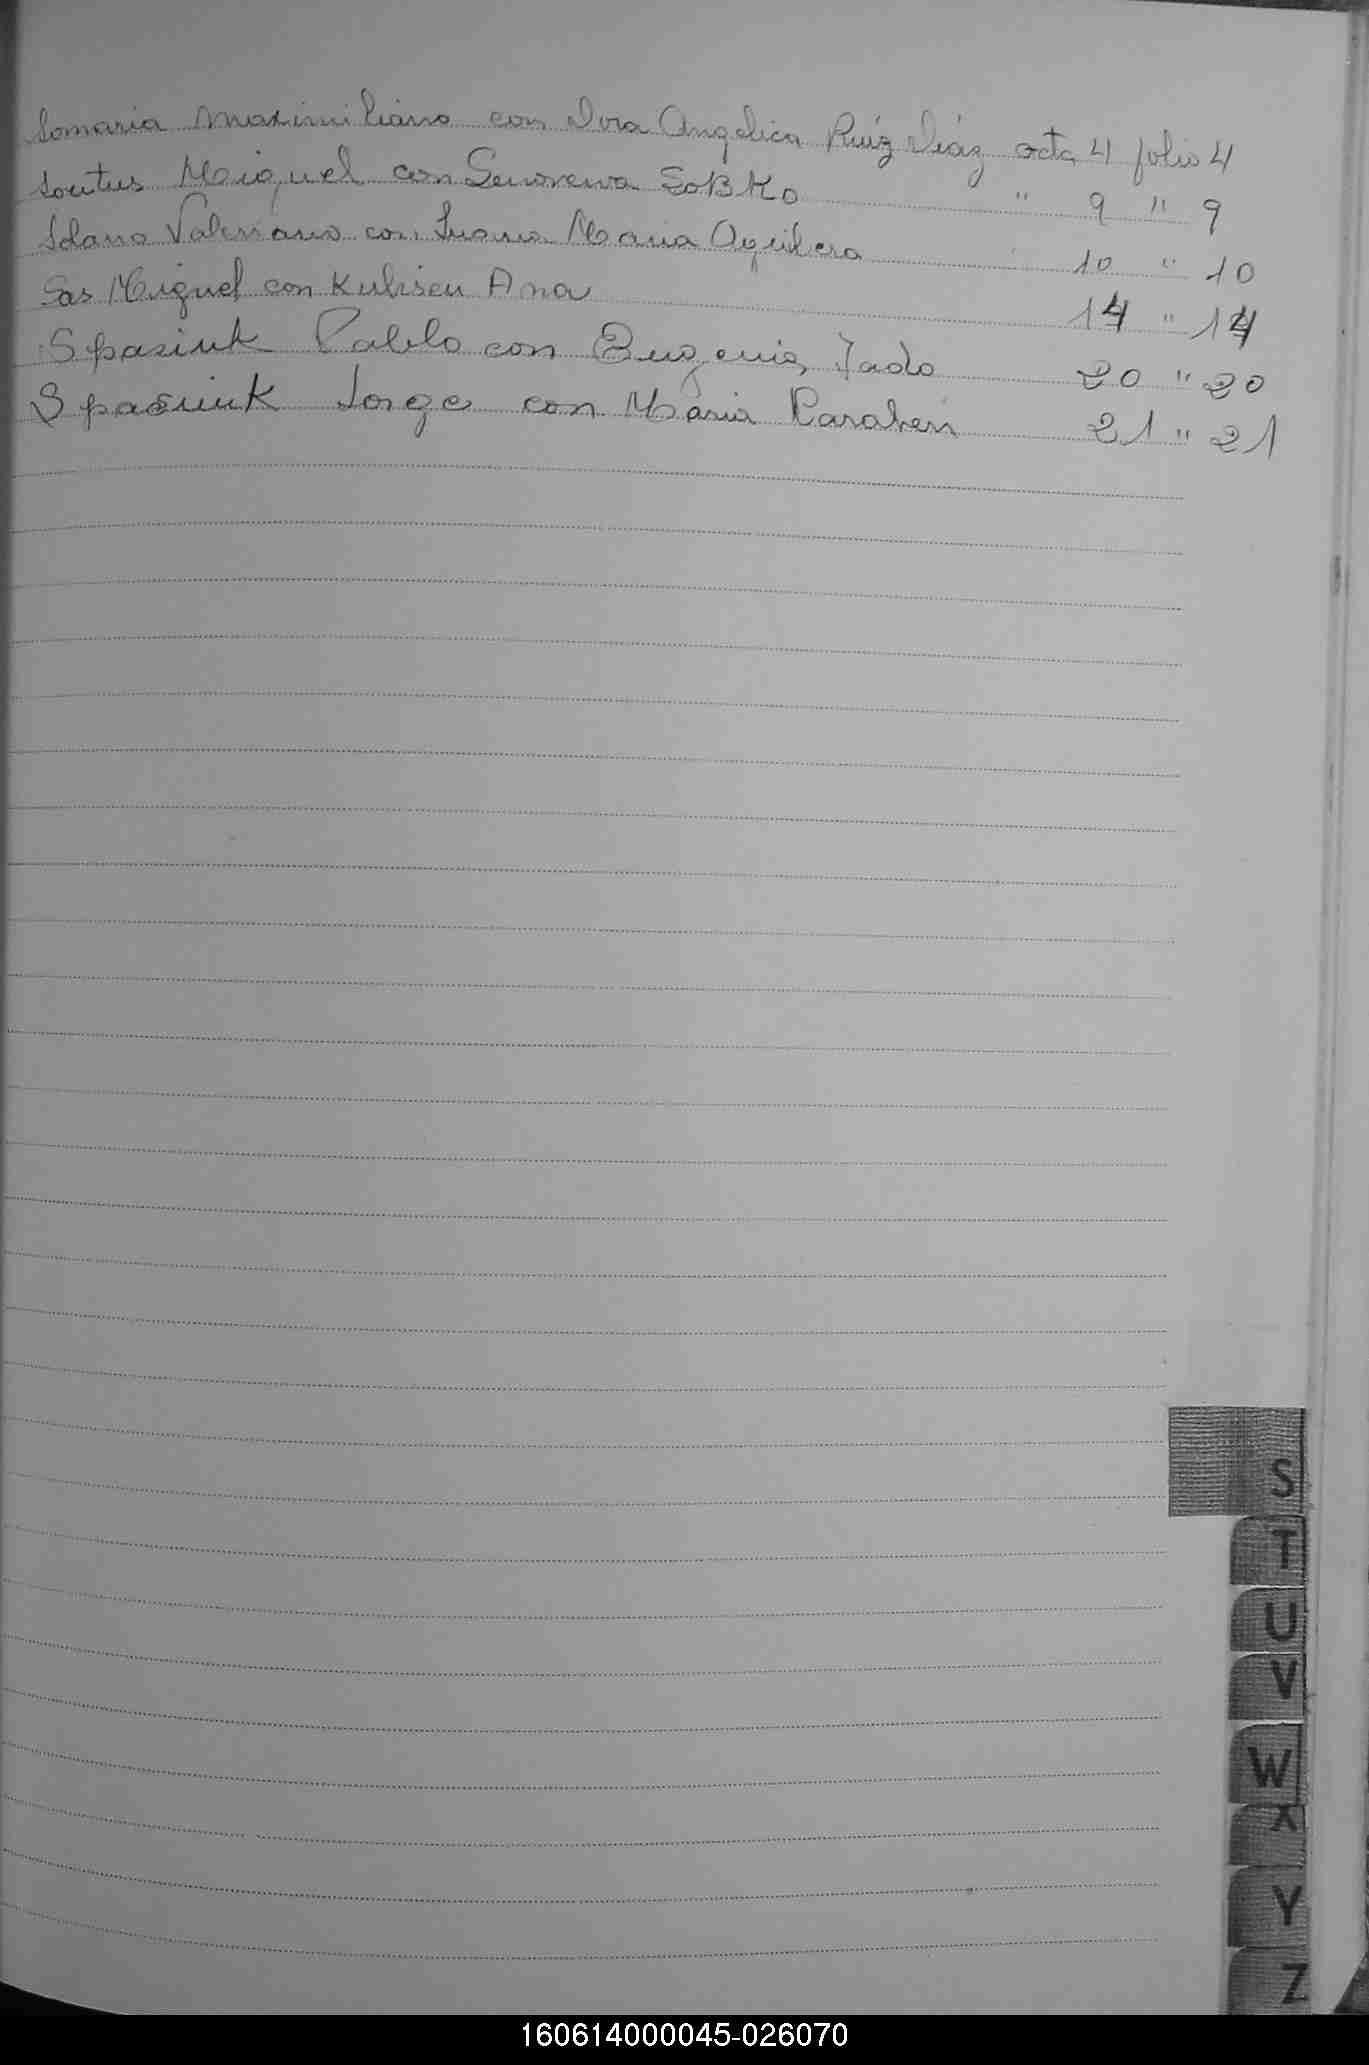 Somaria Maximiliano con Dora Angelica Ruíz Diáz acta 4 folio 4
Miguel con SoBKo " 9 " 9
Solano Valeriano con Juana Maria Aguilera 10 " 10
Sas Miguel con Kulisen Ana 14 " 14
Spasiuk Pablo con Eugenia Jado 20 " 20
Spasiuk Jorge con Maria 21 " 21
S
T
U
V
W
X
Y
Z
160614000045-026070